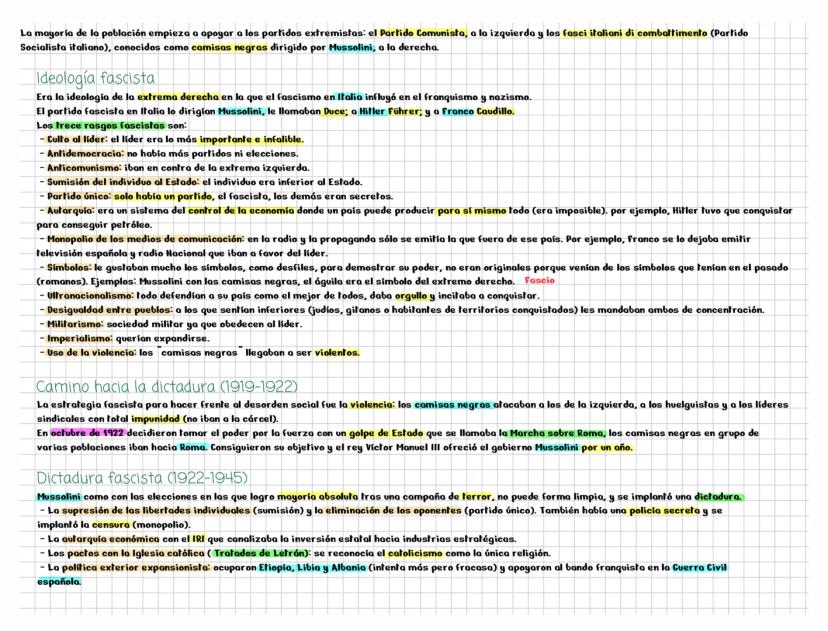 La mayoría de la población empieza a apoyar a los partidos extremistas: el Partido Comunista, a la izquierda y los fasci italiani di combattimento (Partido
Socialista italiano), conocidos como camisas negras dirigido por Mussolini, a la derecha.
Ideología fascista
Era la ideología de la extrema derecha en la que el fascismo en Italia influyó en el franquismo y nazismo.
El partido fascista en Italia lo dirigían Mussolini, le llamaban Duce; a Hitler Führer; y a Franco Caudillo.
Los trece rasgos fascistas son:
- Culto al líder: el líder era lo más importante e infalible.
- Antidemocracia: no había más partidos ni elecciones.
- Anticomunismo: iban en contra de la extrema izquierda.
- Sumisión del individuo al Estado: el individuo era inferior al Estado.
- Partido único: solo había un partido, el fascista, los demás eran secretos.
- Autarquía: era un sistema del control de la economía donde un país puede producir para sí mismo todo (era imposible). por ejemplo, Hitler tuvo que conquistar
para conseguir petróleo.
- Monopolio de los medios de comunicación: en la radio y la propaganda sólo se emitía la que fuera de ese país. Por ejemplo, Franco se lo dejaba emitir
televisión española y radio Nacional que iban a favor del líder.
- Símbolos: le gustaban mucho los símbolos, como desfiles, para demostrar su poder, no eran originales porque venían de los símbolos que tenían en el pasado
(romanos). Ejemplos: Mussolini con las camisas negras, el águila era el símbolo del extremo derecho. Fascio
- Ultranacionalismo: todo defendían a su país como el mejor de todos, daba orgullo y incitaba a conquistar.
- Desigualdad entre pueblos: a los que sentían inferiores (judíos, gitanos o habitantes de territorios conquistados) les mandaban ambos de concentración.
- Militarismo: sociedad militar ya que obedecen al líder.
- Imperialismo: querían expandirse.
- Uso de la violencia: los "camisas negras" llegaban a ser violentos.
Camino hacia la dictadura (1919-1922)
La estrategia fascista para hacer frente al desorden social fue la violencia: los camisas negras atacaban a los de la izquierda, a los huelguistas y a los líderes
sindicales con total impunidad (no iban a la cárcel).
En octubre de 1922 decidieron tomar el poder por la fuerza con un golpe de Estado que se llamaba la Marcha sobre Roma, los camisas negras en grupo de
varias poblaciones iban hacia Roma. Consiguieron su objetivo y el rey Víctor Manuel III ofreció el gobierno Mussolini por un año.
Dictadura fascista (1922-1945)
Mussolini como con las elecciones en las que logro mayoría absoluta tras una campaña de terror, no puede forma limpia, y se implantó una dictadura.
- La supresión de las libertades individuales (sumisión) y la eliminación de los oponentes (partido único). También había una policía secreta y se
implantó la censura (monopolio).
- La autarquía económica con el IRI que canalizaba la inversión estatal hacia industrias estratégicas.
- Los pactos con la Iglesia católica ( Tratados de Letrán): se reconocía el catolicismo como la única religión.
- La política exterior expansionista: ocuparon Etiopía, Libia y Albania (intenta más pero fracasa) y apoyaron al bando franquista en la Guerra Civil
española.